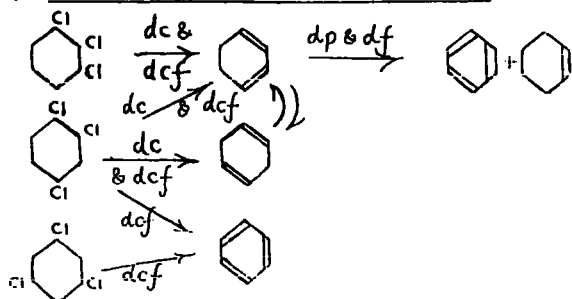 Cl
Cl
Cl
dc &
dcf
dp & df
+
dc & dcf
Cl
Cl
Cl
dc
& dcf
dcf
Cl
Cl
Cl
dcf